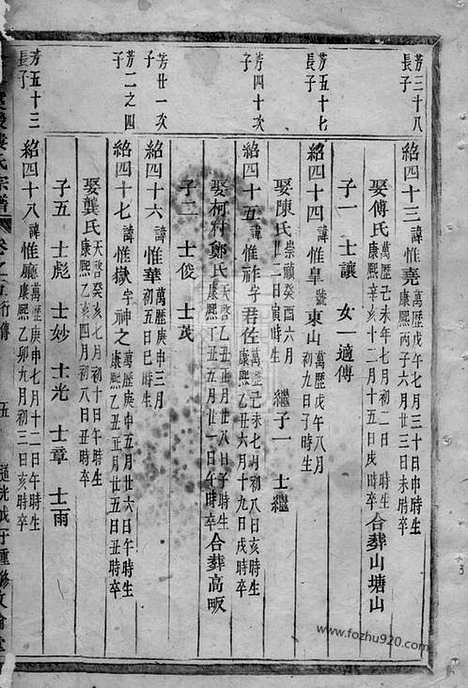 芳三十八長子
紹四十三諱惟堯萬歷戊午七月三十日申時生康熙丙子六月廿三日未時卒
娶傅氏萬歷己未年七月初二日康熙辛亥十二月十五日亥時卒合葬山塘山
子一 士讓 女一適傅
芳五十七長子
紹四十四諱惟皇號東山萬歷戊午八月初九日子時生
娶陳氏崇禎癸酉六月廿二日寅時生 繼子一 士繼
芳四十次子
紹四十五諱惟祚字君佐萬歷己未七月初八日亥時生康熙乙丑六月十九日戌時卒
娶柯村鄭氏天啓乙丑正月廿八日子時生康熙丁丑五月廿一日丑時卒合葬高畈
子二 士俊 士茂
芳廿一次子
紹四十六諱惟華萬歷庚申三月初五日巳時生
芳二之四子
紹四十七諱惟嶽字神之萬歷庚申五月廿六日午時生康熙乙丑五月廿五日丑時卒
娶龔氏天啓癸亥七月初十日午時生康熙乙亥四月初八日丑時卒
子五 士彪 士妙 士光 士章 士雨
芳五十三長子
紹四十八諱惟廳萬歷庚申七月十二日午時生康熙乙卯九月初三日亥時卒
氏宗譜 卷之五行傳 五 道光戊子重修
www.fozhu920.com